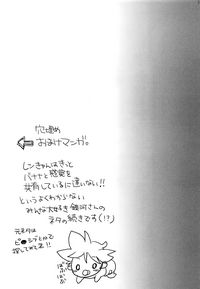 穴埋め
おまけマンガ。
レンきゅんはきっと
バナナと感覚を
共有しているに違いない!!
というよくわからない
みんな大好き 銀河さんの
ネタの続きです(!?)
元ネタは
ピ●シブとかで
探してみて ネ!!